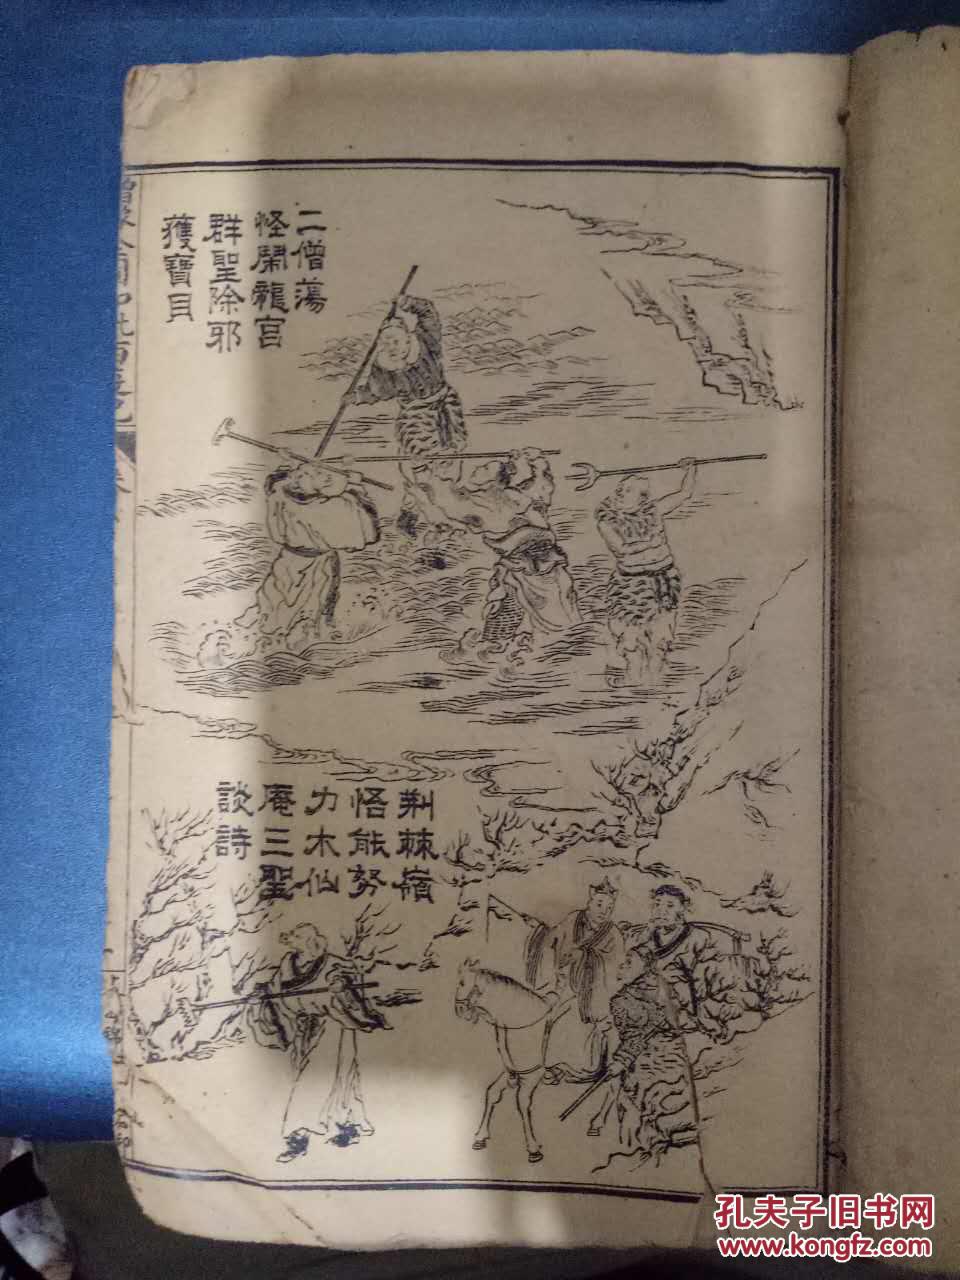 二僧蕩
怪鬧龍宫
群聖除邪
獲寶貝
荆棘嶺
悟能努
力木仙
庵三聖
談詩
孔夫子旧书网
www.kongfz.com